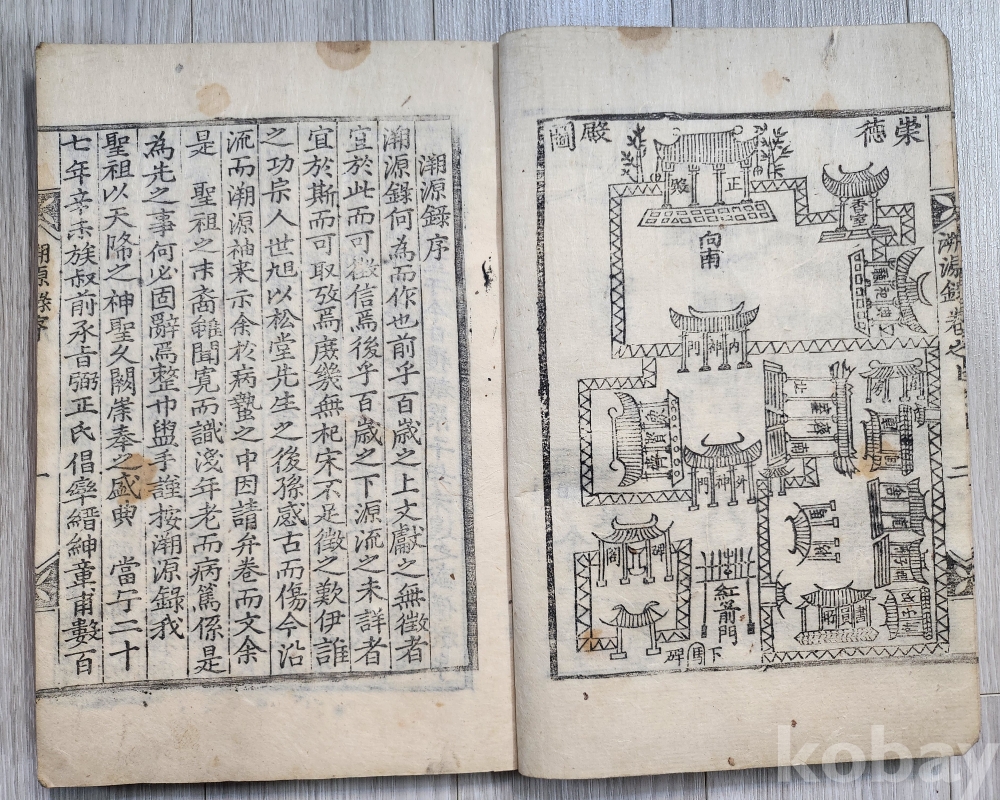 崇德
殿圖
正殿
香室
向南
內神門
外神門
碑閣
紅箭門
下馬碑
溯源錄序
溯源錄何為而作也前乎百歲之上文獻之無徵者
宜於此而可徵信焉後乎百歲之下源流之未詳者
宜於斯而可取攷焉庶幾無杞宋不足徵之歎伊誰
之功宗人世旭以松堂先生之後孫感古而傷今沿
流而溯源神来示余於病蟄之中因請弁卷而文余
是 聖祖之末裔雖聞寬而識淺年老而病篤係是
為先之事何必固辭焉整巾盥手謹按溯源錄我
聖祖以天降之神聖久闕崇奉之盛典 當宁二十
七年辛未族叔前承旨弼正氏倡率縉紳章甫數百
溯源錄序
一
kobay